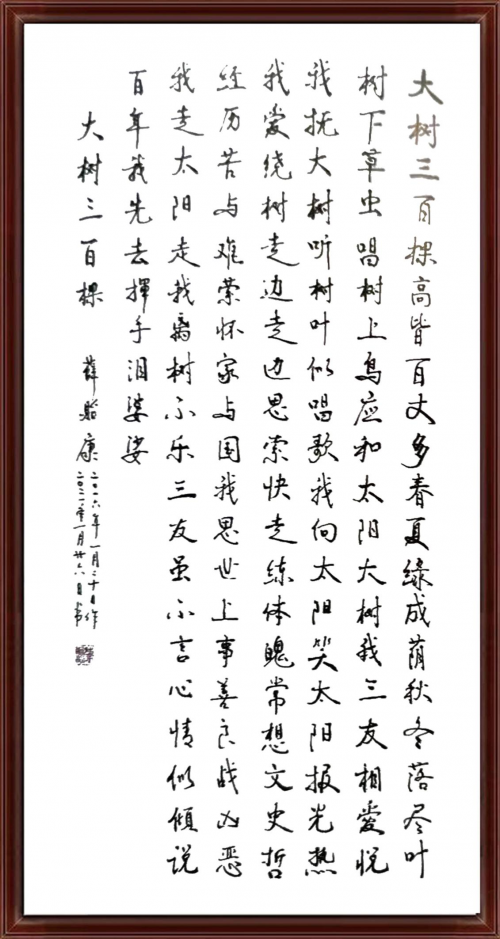 大树三百棵高皆百丈多春夏綠成荫秋冬落尽叶
树下草虫唱树上鸟应和太阳大树我三友相爱悦
我抚大树听树叶似唱歌我向太阳笑太阳报光热
我爱绕树走边走边思索快走练体魄常想文史哲
经历苦与难萦怀家与国我思世上事善良战凶恶
我走太阳走我离树不乐三友虽不言心情似倾说
百年我先去揮手泪婆娑
大树三百棵 薛贻康
二〇一六年一月二十日作
一月廿六日书